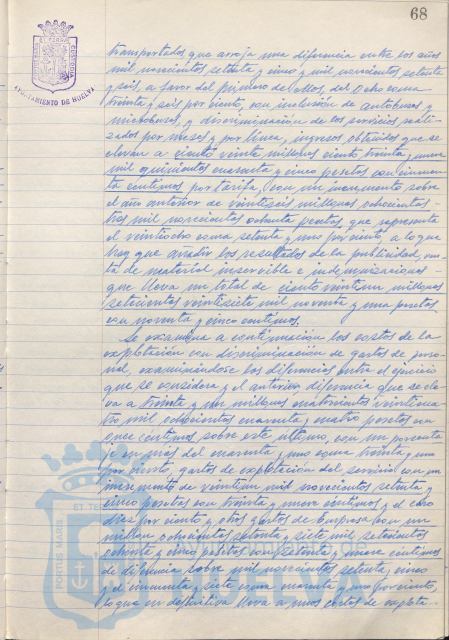 68
AYUNTAMIENTO DE HUELVA
transportados que arroja una diferencia entre los años
mil novecientos setenta y cinco y mil novecientos setenta
y seis, a favor del primero de ellos, del ocho coma
treinta y seis por ciento, con inclusión de autobuses y
microbuses, y discriminación de los servicios reali-
zados por meses y por línea, ingresos obtenidos que se
elevan a ciento veinte millones ciento treinta y nueve
mil quinientos cuarenta y cinco pesetas con cincuen-
ta céntimos por tarifa, con un incremento sobre
el año anterior de veintiséis millones ochocientas
tres mil novecientas ochenta pesetas, que representa
el veintiocho coma setenta y uno por ciento, a lo que
hay que añadir los resultados de la publicidad, ven-
ta de material inservible e indemnizaciones -
que lleva un total de ciento veintiun millones
setecientas veintisiete mil noventa y una pesetas
con noventa y cinco céntimos.
Se examina a continuación los costos de la
explotación con discriminación de gastos de perso-
nal, examinándose las diferencias entre el ejercicio
que se considera y el anterior diferencia que se ele-
va a treinta y un millones cuatrocientas veinticua-
tro mil ochocientas cuarenta y cuatro pesetas con
once céntimos sobre este último, con un porcenta
je en más del cuarenta y uno coma treinta y uno
por ciento, gastos de explotación del servicio con un
incremento de veintiun mil novecientas setenta y
cinco pesetas con treinta y nueve céntimos y el cero
diez por ciento y otros gastos de Empresa con un
millón ochocientas setenta y siete mil setecientas
ochenta y cinco pesetas con setenta y nueve céntimos
de diferencia sobre mil novecientos setenta y cinco
y el cincuenta y siete coma cuarenta y uno por ciento,
lo que en definitiva lleva a unos costos de explota-